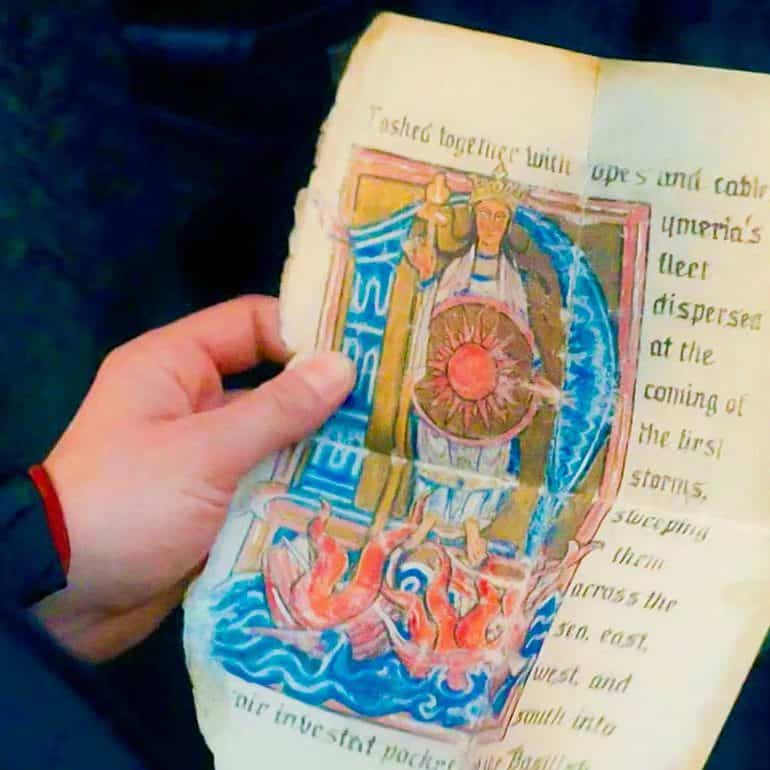 together with opes and cable
ymeria's
fleet
dispersed
at the
coming of
the first
storms,
sweeping
them
across the
sea, east,
west, and
south into
the Basilis
invested pocke